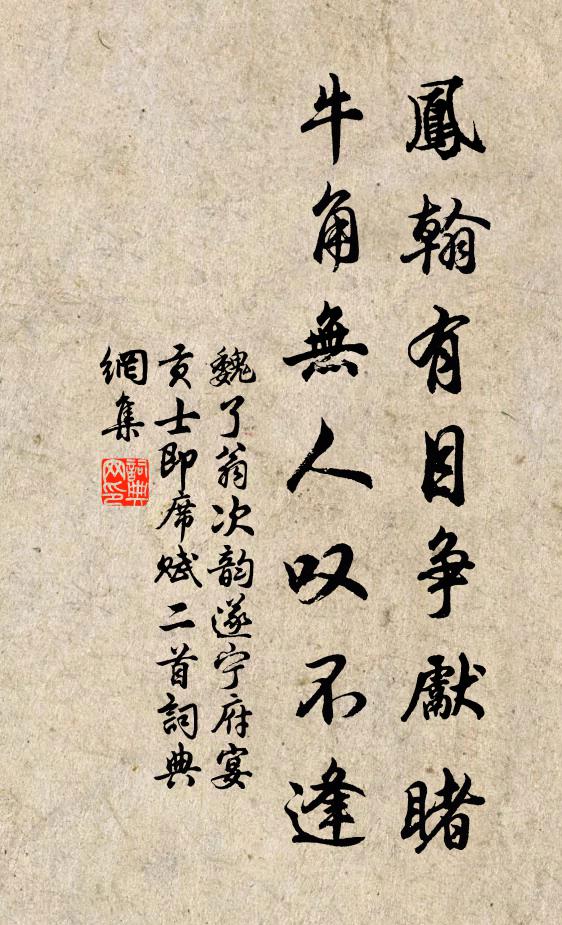 鳳翰有目争獻睹
牛角無人叹不逢
魏了翁次韵遂宁府宴
贡士即席赋二首詞典
網集
詞典
网印